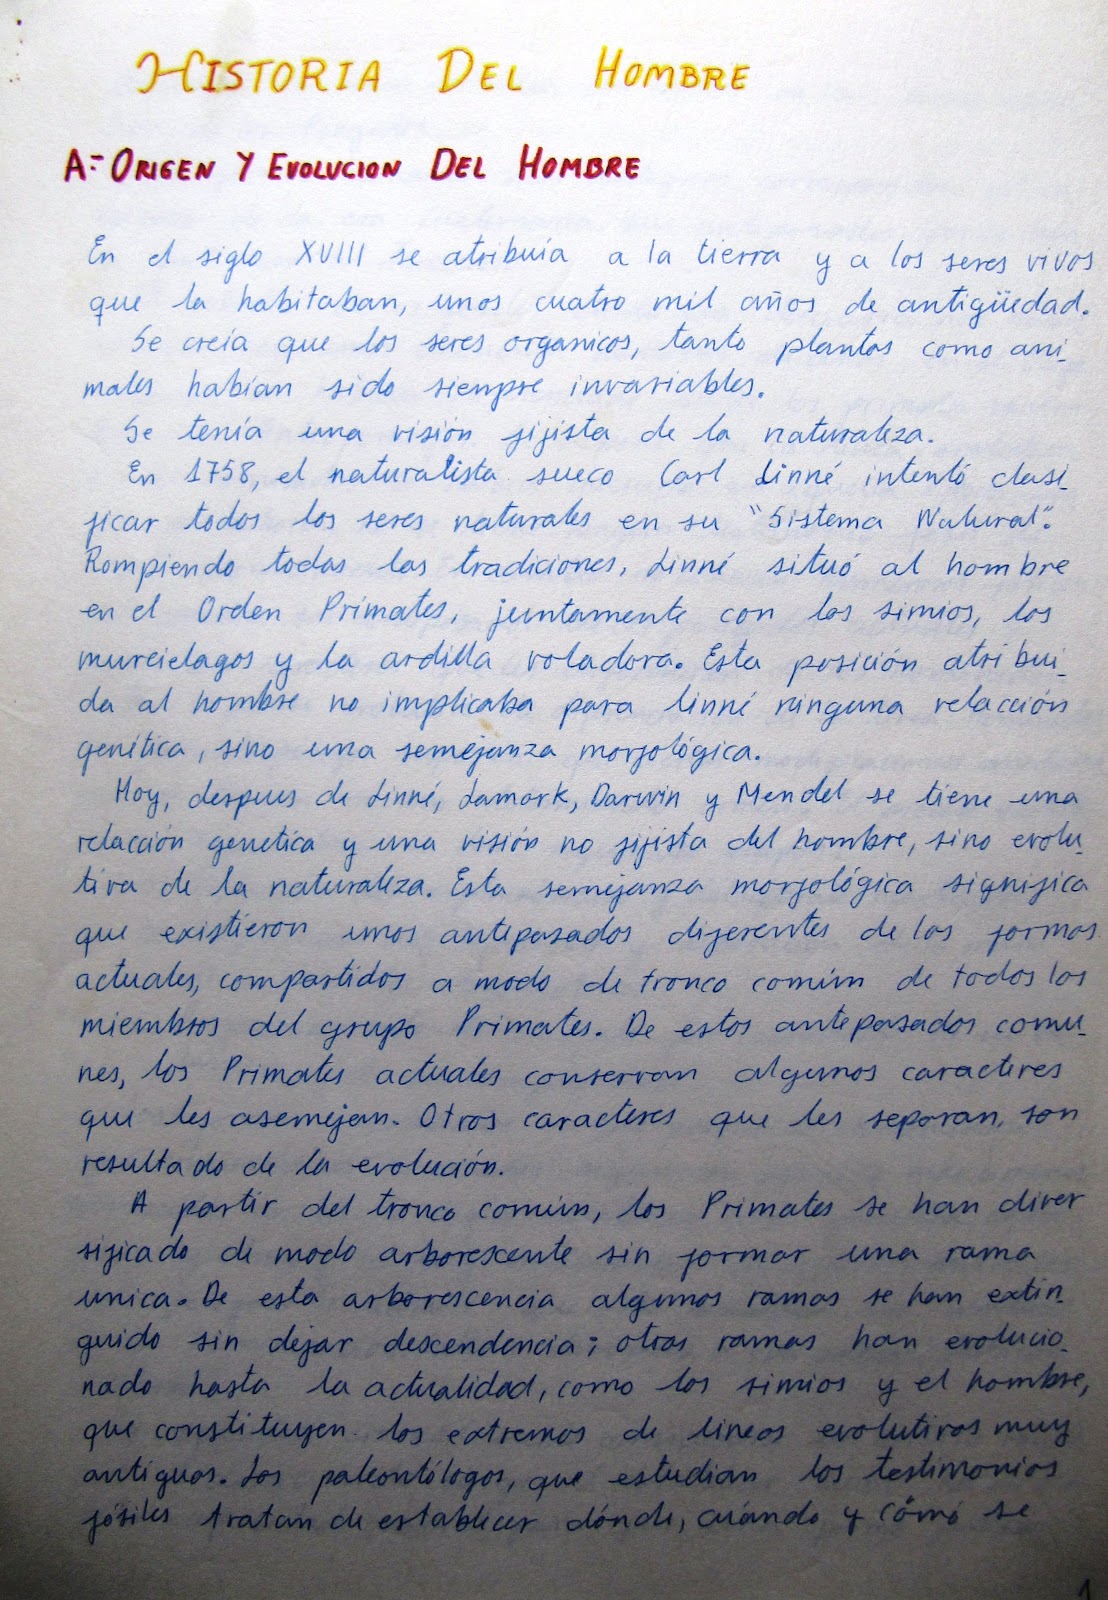 HISTORIA DEL HOMBRE
A=ORIGEN Y EVOLUCION DEL HOMBRE
En el siglo XVIII se atribuía a la tierra y a los seres vivos
que la habitaban, unos cuatro mil años de antigüedad.
Se creía que los seres organicos, tanto plantas como ani-
males habían sido siempre invariables.
Se tenía una visión fijista de la naturaleza.
En 1758, el naturalista sueco Carl Linné intentó clasi-
ficar todos los seres naturales en su "Sistema Natural".
Rompiendo todas las tradiciones, Linné situó al hombre
en el Orden Primates, juntamente con los simios, los
murcielagos y la ardilla voladora. Esta posición atribui-
da al hombre no implicaba para Linné ninguna relacción
genética, sino una semejanza morfológica.
Hoy, despues de Linné, Lamark, Darwin y Mendel se tiene una
relacción genetica y una visión no fijista del hombre, sino evolu-
tiva de la naturaleza. Esta semejanza morfológica significa
que existieron unos antepasados diferentes de las formas
actuales, compartidos a modo de tronco común de todos los
miembros del grupo Primates. De estos antepasados comu-
nes, los Primates actuales conservan algunos caracteres
que les asemejan. Otros caracteres que les separan, son
resultado de la evolución.
A partir del tronco común, los Primates se han diver
sificado de modo arborescente sin formar una rama
unica. De esta arborescencia algunas ramas se han extin-
guido sin dejar descendencia; otras ramas han evolucio-
nado hasta la actualidad, como los simios y el hombre,
que constituyen los extremos de lineas evolutivas muy
antiguas. Los paleontólogos, que estudian los testimonios
fósiles tratan de establecer dónde, cuándo y cómo se
1